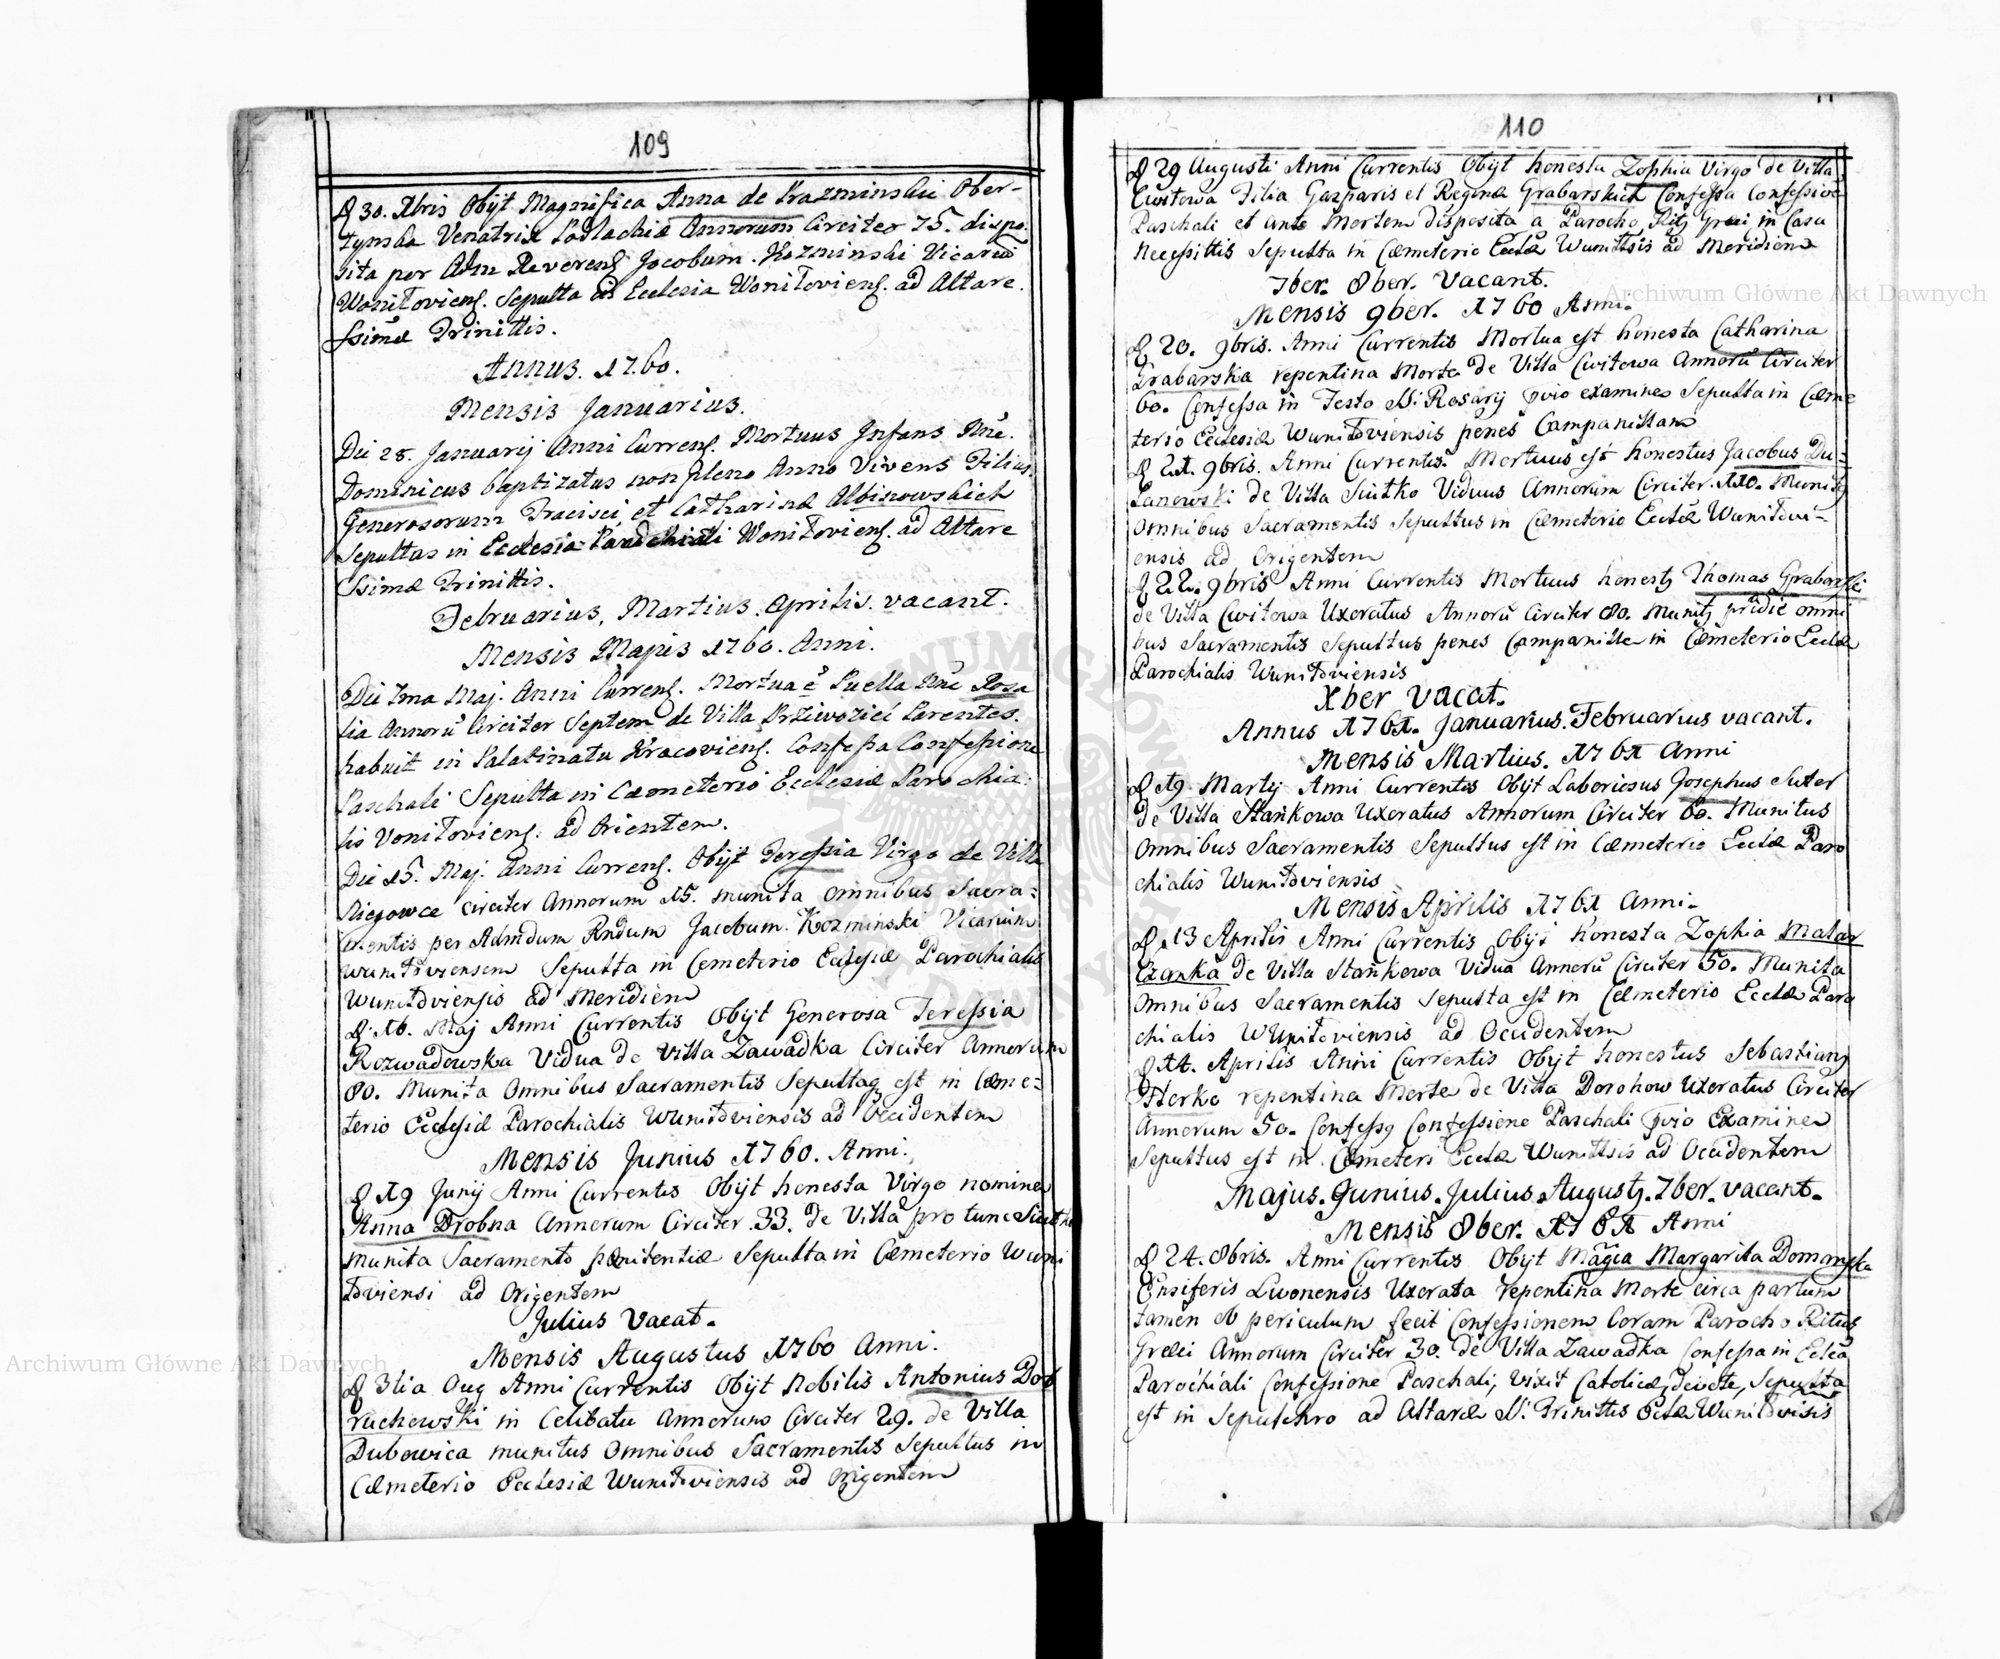 109
D 30. Xbris Obijt Magnifica Anna de Krazminskie Ober-
tynska Venatrix Podlachiæ Annorum Circiter 75. dispo-
sita per Adm Reverend Jacobum Kozminski Vicariū
Wonitoviens. Sepulta in Ecclesia Wonitoviens. ad Altare
SSimæ Trinittis.
Annus. 1760.
Mensis Januarius.
Die 28. Januarij Anni Currens. Mortuus Infans Nñe.
Dominicus baptizatus non pleno Anno Vivens Filius
Generosorum Fracisci et Catharinæ Albinowskich
Sepultus in Ecclesia Parochiali Wonitoviens. ad Altare
SSimæ Trinittis.
Februarius, Martius. Aprilis. vacant.
Mensis Majus 1760. Anni.
Die 7ma Maj. Anni Currens. Mortua ē Puella Nñe Rosa
lia Annorū Circiter Septem de Villa Parentes
habuit in Palatinatu Kracoviens. Confessa Confessione
Paschali Sepulta in Cæmeterio Ecclesiæ Parochia-
lis Vonitoviens. ad Orientem.
Die 15. Maj. Anni Currens. Obijt Teressia Virgo de Villa
Niegowce circiter Annorum 15. munita omnibus Sacra-
mentis per Admdum Rndum Jacobum Kozminski Vicarium
Wunitoviensem Sepulta in Cemeterio Ecclesiæ Parochialis
Wunitoviensis ad Meridiem
D 16. Maj Anni Currentis Obijt Generosa Teressia
Rozwadowska Vidua de Villa Zawadka Circiter Annorum
80. Munita Omnibus Sacramentis Sepultaq est in Cæme-
terio Ecclesiæ Parochialis Wunitoviensis ad Occidentem
Mensis Junius 1760. Anni.
D 19 Junij Anni Currentis Obijt honesta Virgo nomine
Anna Drobna Annorum Circiter 33. de Villa pro tunc Siutko
munita Sacramento pœnitentiæ Sepulta in Cæmeterio Wuni
toviensi ad Origentem
Julius Vacat.
Mensis Augustus 1760 Anni.
D 3tia Aug Anni Currentis Obijt Nobilis Antonius Dob
ruchowski in Celibatu Annorum Circiter 29. de Villa
Dubowica munitus Omnibus Sacramentis Sepultus in
Cæmeterio Ecclesiæ Wunitoviensis ad Origentem
110
D 29 Augusti Anni Currentis Obijt honesta Zophia Virgo de Villa
Cwitowa Filia Gasparis et Reginæ Grabarskich Confessa Confessione
Paschali et ante Mortem disposita a Parocho Ritq Græi in Casu
Necessittis Sepulta in Cæmeterio Ecclæ Wunittsis ad Meridiem
7ber. 8ber. Vacant.
Mensis 9ber. 1760 Anni.
D 20. 9bris. Anni Currentis Mortua est honesta Catharina
Grabarska repentina Morte de Villa Cwitowa Annorū Circiter
60. Confessa in Festo SS: Rosarij pvio examine Sepulta in Cæme
terio Ecclesiæ Wunitoviensis penes Campanillam
D 21. 9bris. Anni Currentis. Mortuus est honestus Jacobus Du-
Lanowski de Villa Siutko Viduus Annorum Circiter 110. Munitq
Omnibus Sacramentis Sepultus in Cæmeterio Ecclæ Wunitovi-
ensis ad Origentem
D 22. 9bris Anni Currentis Mortuus honestq Thomas Grabarski
de Villa Cwitowa Uxoratus Annorū Circiter 80. Munitq pridie omni
bus Sacramentis Sepultus penes Campanille in Cæmeterio Ecclæ
Parochialis Wunitoviensis
Xber Vacat.
Annus 1761. Januarius. Februarius vacant.
Mensis Martius. 1761 Anni
D 19. Martij Anni Currentis Obijt Laboriosus Josephus Suter
de Villa Stankowa Uxoratus Annorum Circiter 60. Munitus
Omnibus Sacramentis Sepultus est in Cæmeterio Ecclæ Paro
chialis Wunitoviensis
Mensis Aprilis 1761 Anni.
D 13 Aprilis Anni Currentis Obijt honesta Zophia Malar
Czanka de Villa Stankowa Vidua Annorū Circiter 50. Munita
Omnibus Sacramentis Sepulta est in Cæmeterio Ecclæ Paro
chialis WUnitoviensis ad Occidentem
D 14. Aprilis Anni Currentis Obijt honestus Sebastianq
Herko repentina Morte de Villa Dorohow Uxoratus Circiter
Annorum 50. Confessq Confessione Paschali pvio Examine
Sepultus est in Cæmeteri Ecclæ Wunittsis ad Occidentem
Majus. Junius. Julius. Augustq. 7ber. vacant.
Mensis 8ber. 1761 Anni
D 24. 8bris. Anni Currentis Obijt Mãgca Margarita Domanska
Ensiferis Livonensis Uxorata repentina Morte circa partum
tamen ob periculum fecit Confessionem Coram Parocho Ritus
Græci Annorum Circiter 30. de Villa Zawadka Confessa in Eclēa
Parochiali Confessione Paschali, vixit Catolicæ, devote, Sepulta
est in Sepulchro ad Altare SS: Trinittis Eclæ Wunitovisis
Archiwum Główne Akt Dawnych
Archiwum Główne Akt Dawnych